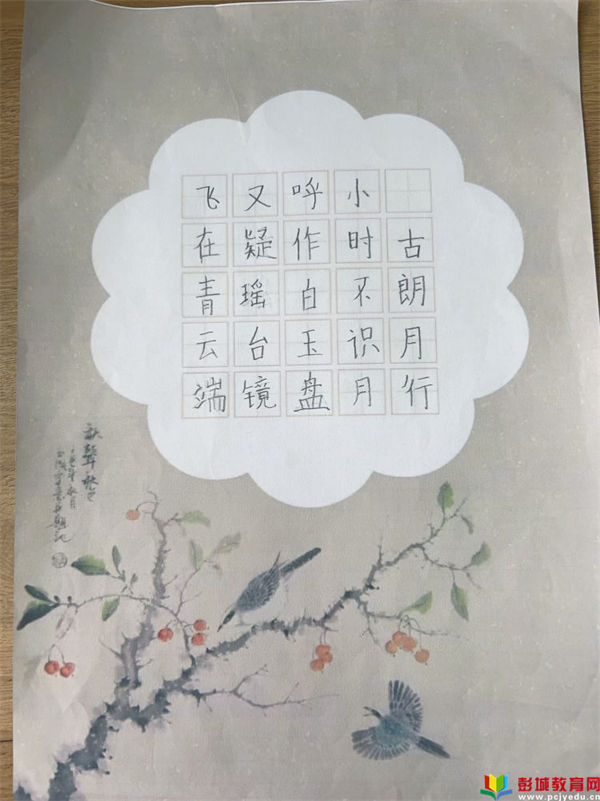 古朗月行
小时不识月
呼作白玉盘
又疑瑶台镜
飞在青云端
彭城教育网
www.pcjyedu.cn